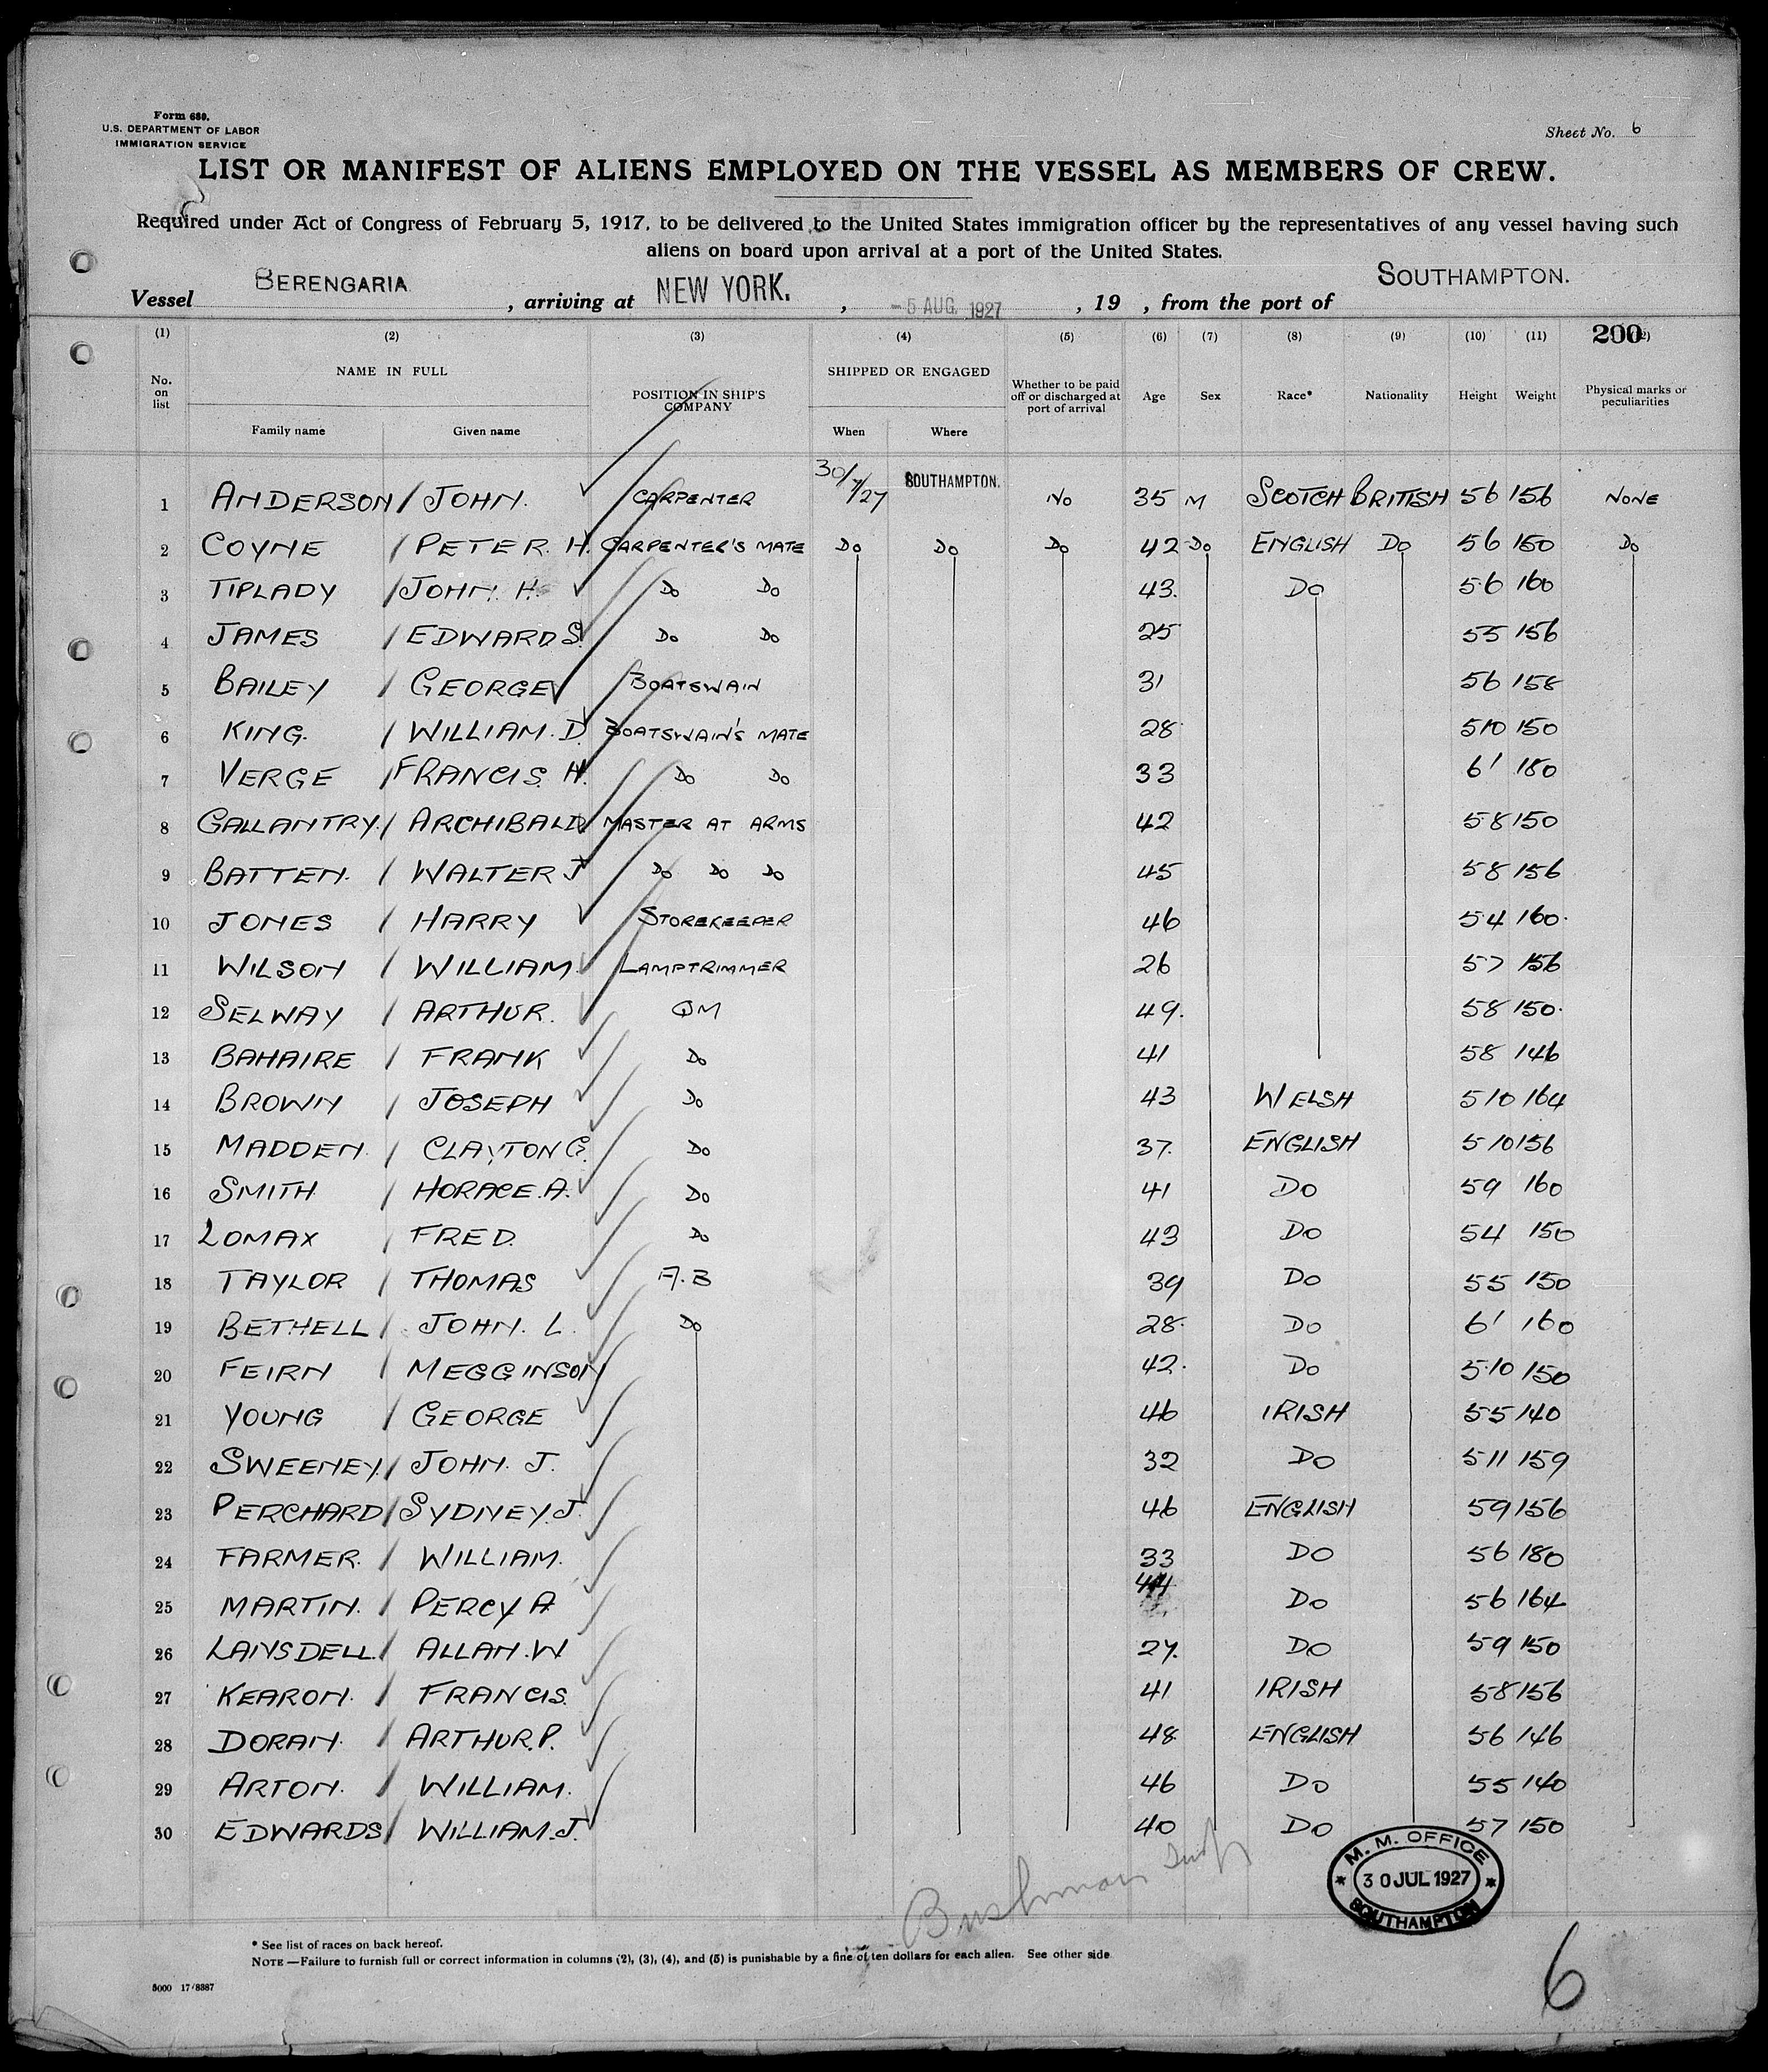 Form 689.
U.S. DEPARTMENT OF LABOR
IMMIGRATION SERVICE
Sheet No. 6
LIST OR MANIFEST OF ALIENS EMPLOYED ON THE VESSEL AS MEMBERS OF CREW.
Required under Act of Congress of February 5, 1917, to be delivered to the United States immigration officer by the representatives of any vessel having such
aliens on board upon arrival at a port of the United States.
Vessel BERENGARIA, arriving at NEW YORK., -5 AUG. 1927, 19 , from the port of SOUTHAMPTON.
(1) (2) (3) (4) (5) (6) (7) (8) (9) (10) (11) 200
No. on list NAME IN FULL POSITION IN SHIP'S COMPANY SHIPPED OR ENGAGED Whether to be paid off or discharged at port of arrival Age Sex Race* Nationality Height Weight Physical marks or peculiarities
Family name Given name When Where
1 ANDERSON / JOHN. CARPENTER 30/7/27 SOUTHAMPTON. No 35 M SCOTCH BRITISH 56 156 NONE
2 COYNE / PETER. H. CARPENTER'S MATE Do Do Do 42 Do ENGLISH Do 56 150 Do
3 TIPLADY / JOHN. H. Do Do 43. Do 56 160
4 JAMES / EDWARD S. Do Do 25 55 156
5 BAILEY / GEORGE BOATSWAIN 31 56 158
6 KING. / WILLIAM. D. BOATSWAIN'S MATE 28 510 150
7 VERGE / FRANCIS. H. Do Do 33 6' 180
8 GALLANTRY. / ARCHIBALD MASTER AT ARMS 42 58 150
9 BATTEN. / WALTER J Do Do Do 45 58 156
10 JONES / HARRY STOREKEEPER 46 54 160.
11 WILSON / WILLIAM. LAMPTRIMMER 26 57 156
12 SELWAY / ARTHUR. QM 49. 58 150.
13 BAHAIRE / FRANK Do 41 58 146
14 BROWN / JOSEPH Do 43 WELSH 510 164
15 MADDEN. / CLAYTON G. Do 37. ENGLISH 510 156
16 SMITH / HORACE. A. Do 41 Do 59 160
17 LOMAX / FRED. Do 43 Do 54 150
18 TAYLOR / THOMAS A.B 39 Do 55 150
19 BETHELL / JOHN. L. Do 28. Do 6' 160
20 FEIRN / MEGGINSON 42. Do 5.10 150
21 YOUNG / GEORGE 46 IRISH 55 140
22 SWEENEY. / JOHN. J. 32 Do 511 159
23 PERCHARD / SYDNEY. J. 46 ENGLISH 59 156
24 FARMER. / WILLIAM. 33 DO 56 180
25 MARTIN. / PERCY A 44 Do 56 164
26 LANSDELL. / ALLAN. W 27. DO 59 150
27 KEARON. / FRANCIS. 41 IRISH 58 156
28 DORAN. / ARTHUR. P. 48 ENGLISH 56 146
29 ARTON. / WILLIAM. 46 Do 55 140
30 EDWARDS / WILLIAM. J. 40 Do 57 150
M. M. OFFICE
30 JUL 1927
SOUTHAMPTON
Bushman
* See list of races on back hereof.
NOTE —Failure to furnish full or correct information in columns (2), (3), (4), and (5) is punishable by a fine of ten dollars for each alien. See other side
5000 17/8387
6